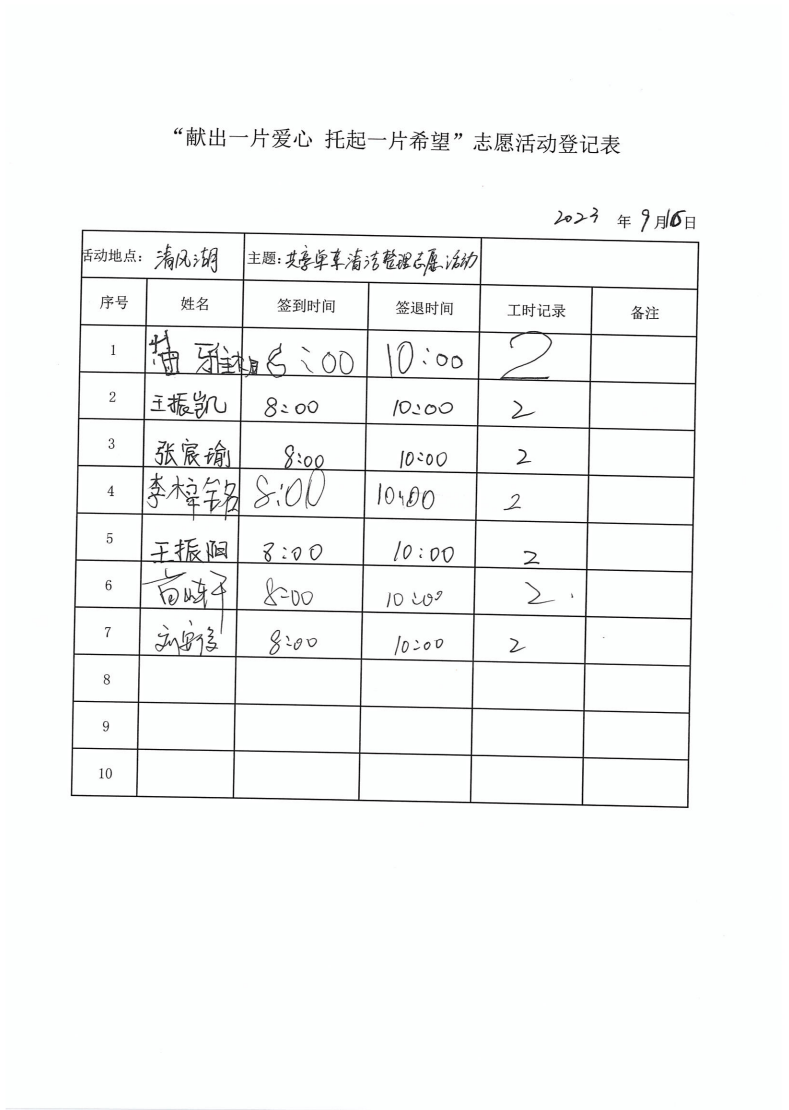 “献出一片爱心 托起一片希望”志愿活动登记表
2023 年 9 月 16 日
活动地点: 清风湖 主题: 共享单车清洁整理志愿活动
序号 姓名 签到时间 签退时间 工时记录 备注
1 雅 8:00 10:00 2
2 王振凯 8:00 10:00 2
3 张宸瑜 8:00 10:00 2
4 李梓铭 8:00 10:00 2
5 王振阳 8:00 10:00 2
6 8:00 10:00 2
7 刘安 8:00 10:00 2
8
9
10